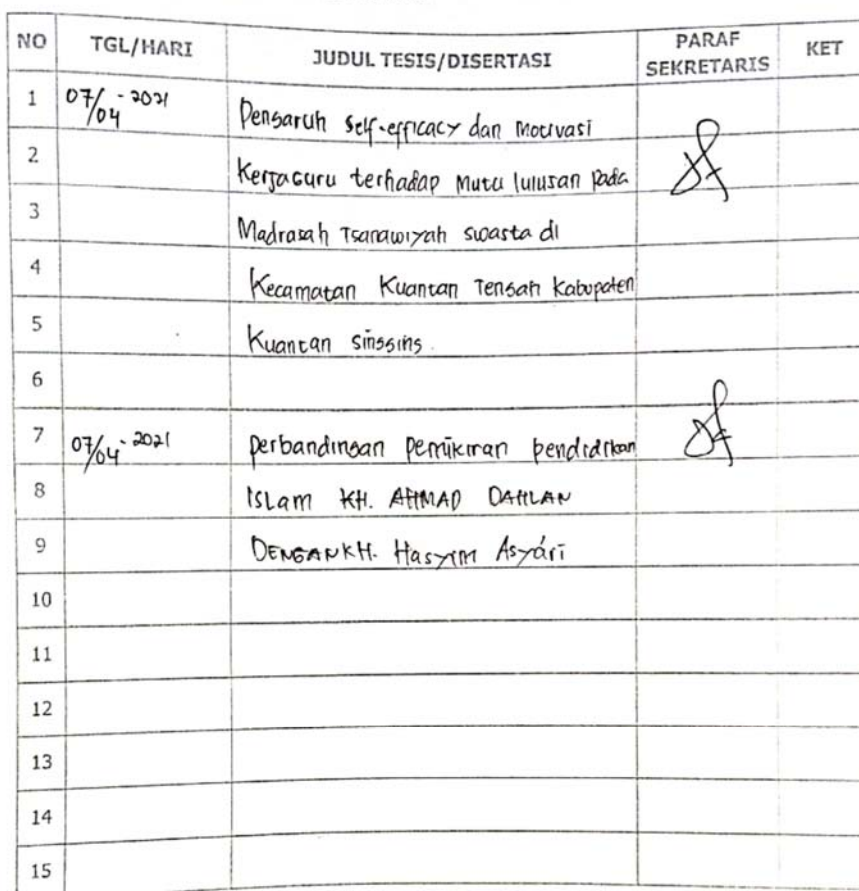 NO TGL/HARI JUDUL TESIS/DISERTASI PARAF SEKRETARIS KET
1 07/04-2021 Pengaruh Self-efficacy dan Motivasi
2 Kerja Guru terhadap Mutu lulusan pada
3 Madrasah Tsanawiyah swasta di
4 Kecamatan Kuantan Tengah Kabupaten
5 Kuantan singging.
6
7 07/04-2021 perbandingan pemikiran pendidikan
8 Islam KH. AHMAD DAHLAN
9 DENGAN KH. Hasyim Asyári
10
11
12
13
14
15